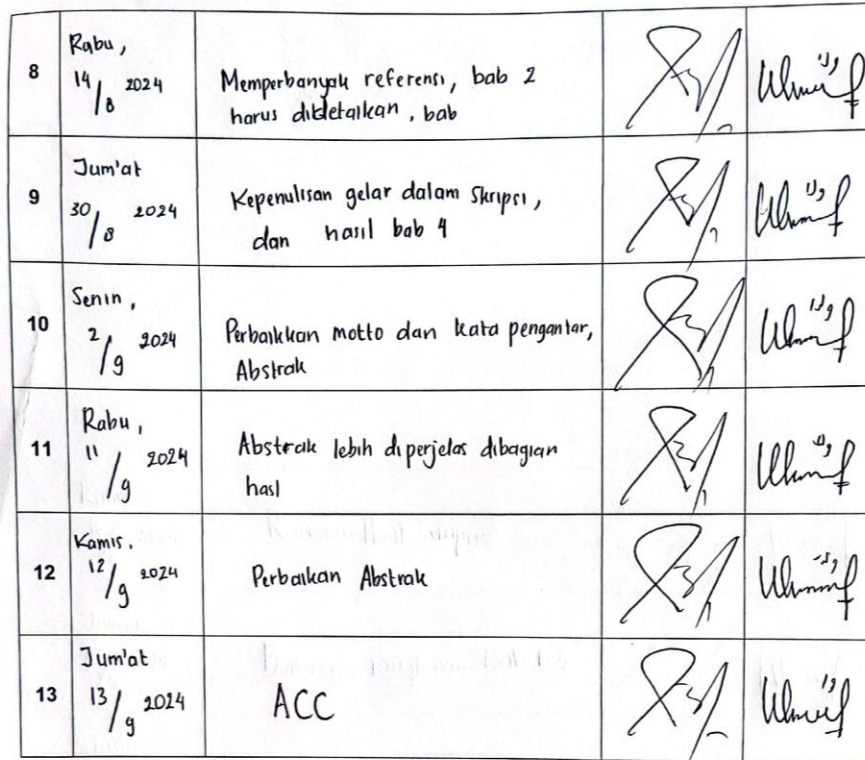 8
Rabu,
14/8 2024
Memperbanyak referensi, bab 2
harus dibdetailkan, bab
9
Jum'at
30/8 2024
Kepenulisan gelar dalam Skripsi,
dan hasil bab 4
10
Senin,
2/9 2024
Perbaikkan motto dan kata pengantar,
Abstrak
11
Rabu,
11/9 2024
Abstrak lebih diperjelas dibagian
hasl
12
Kamis,
12/9 2024
Perbaikan Abstrak
13
Jum'at
13/9 2024
ACC